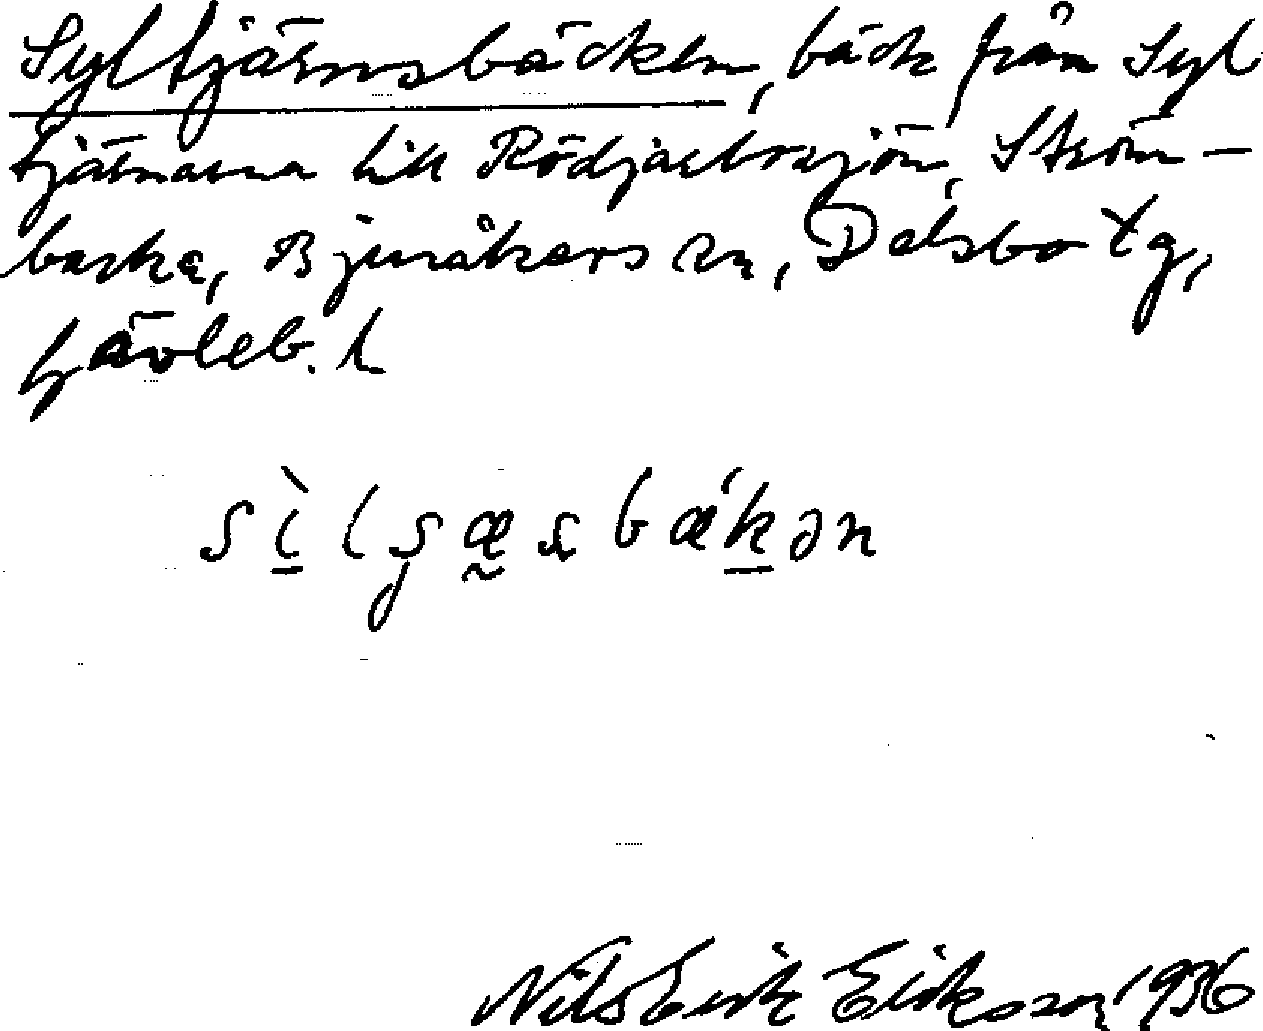 Syltjärnsbäcken, bäck från Syl
tjärnarna till Rödjaebrosjön, Ström-
backa, Bjuråkers sn, Delsbo tg,
Gävleb. l
Nils Erik Eriksson 1936